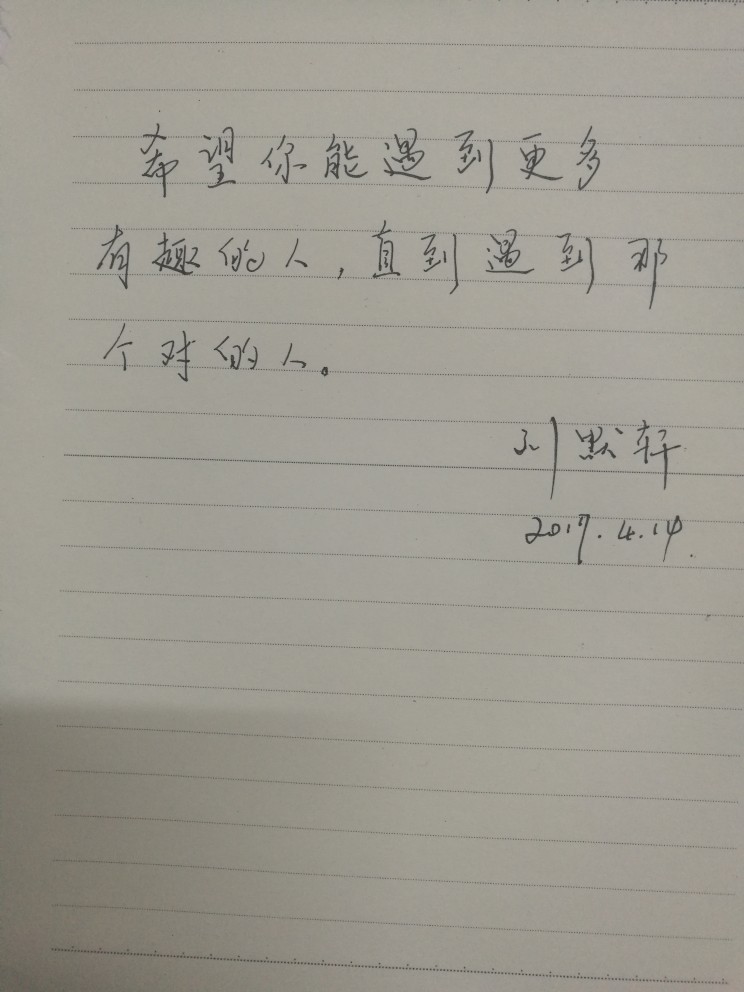 希望你能遇到更多
有趣的人，直到遇到那
个对的人。
刘默轩
2017.4.14.